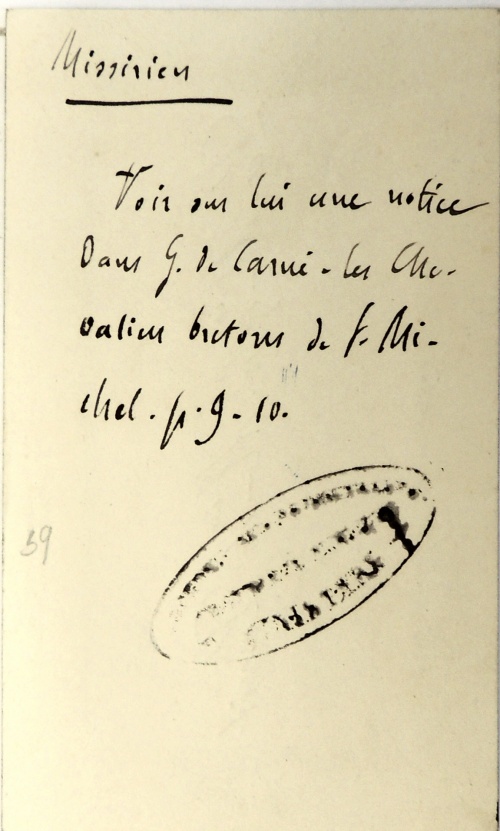 Missirien
Voir sur lui une notice
Dans G. de Carné - les Che-
valiers bretons de S. Mi-
chel. p. 9-10.
59